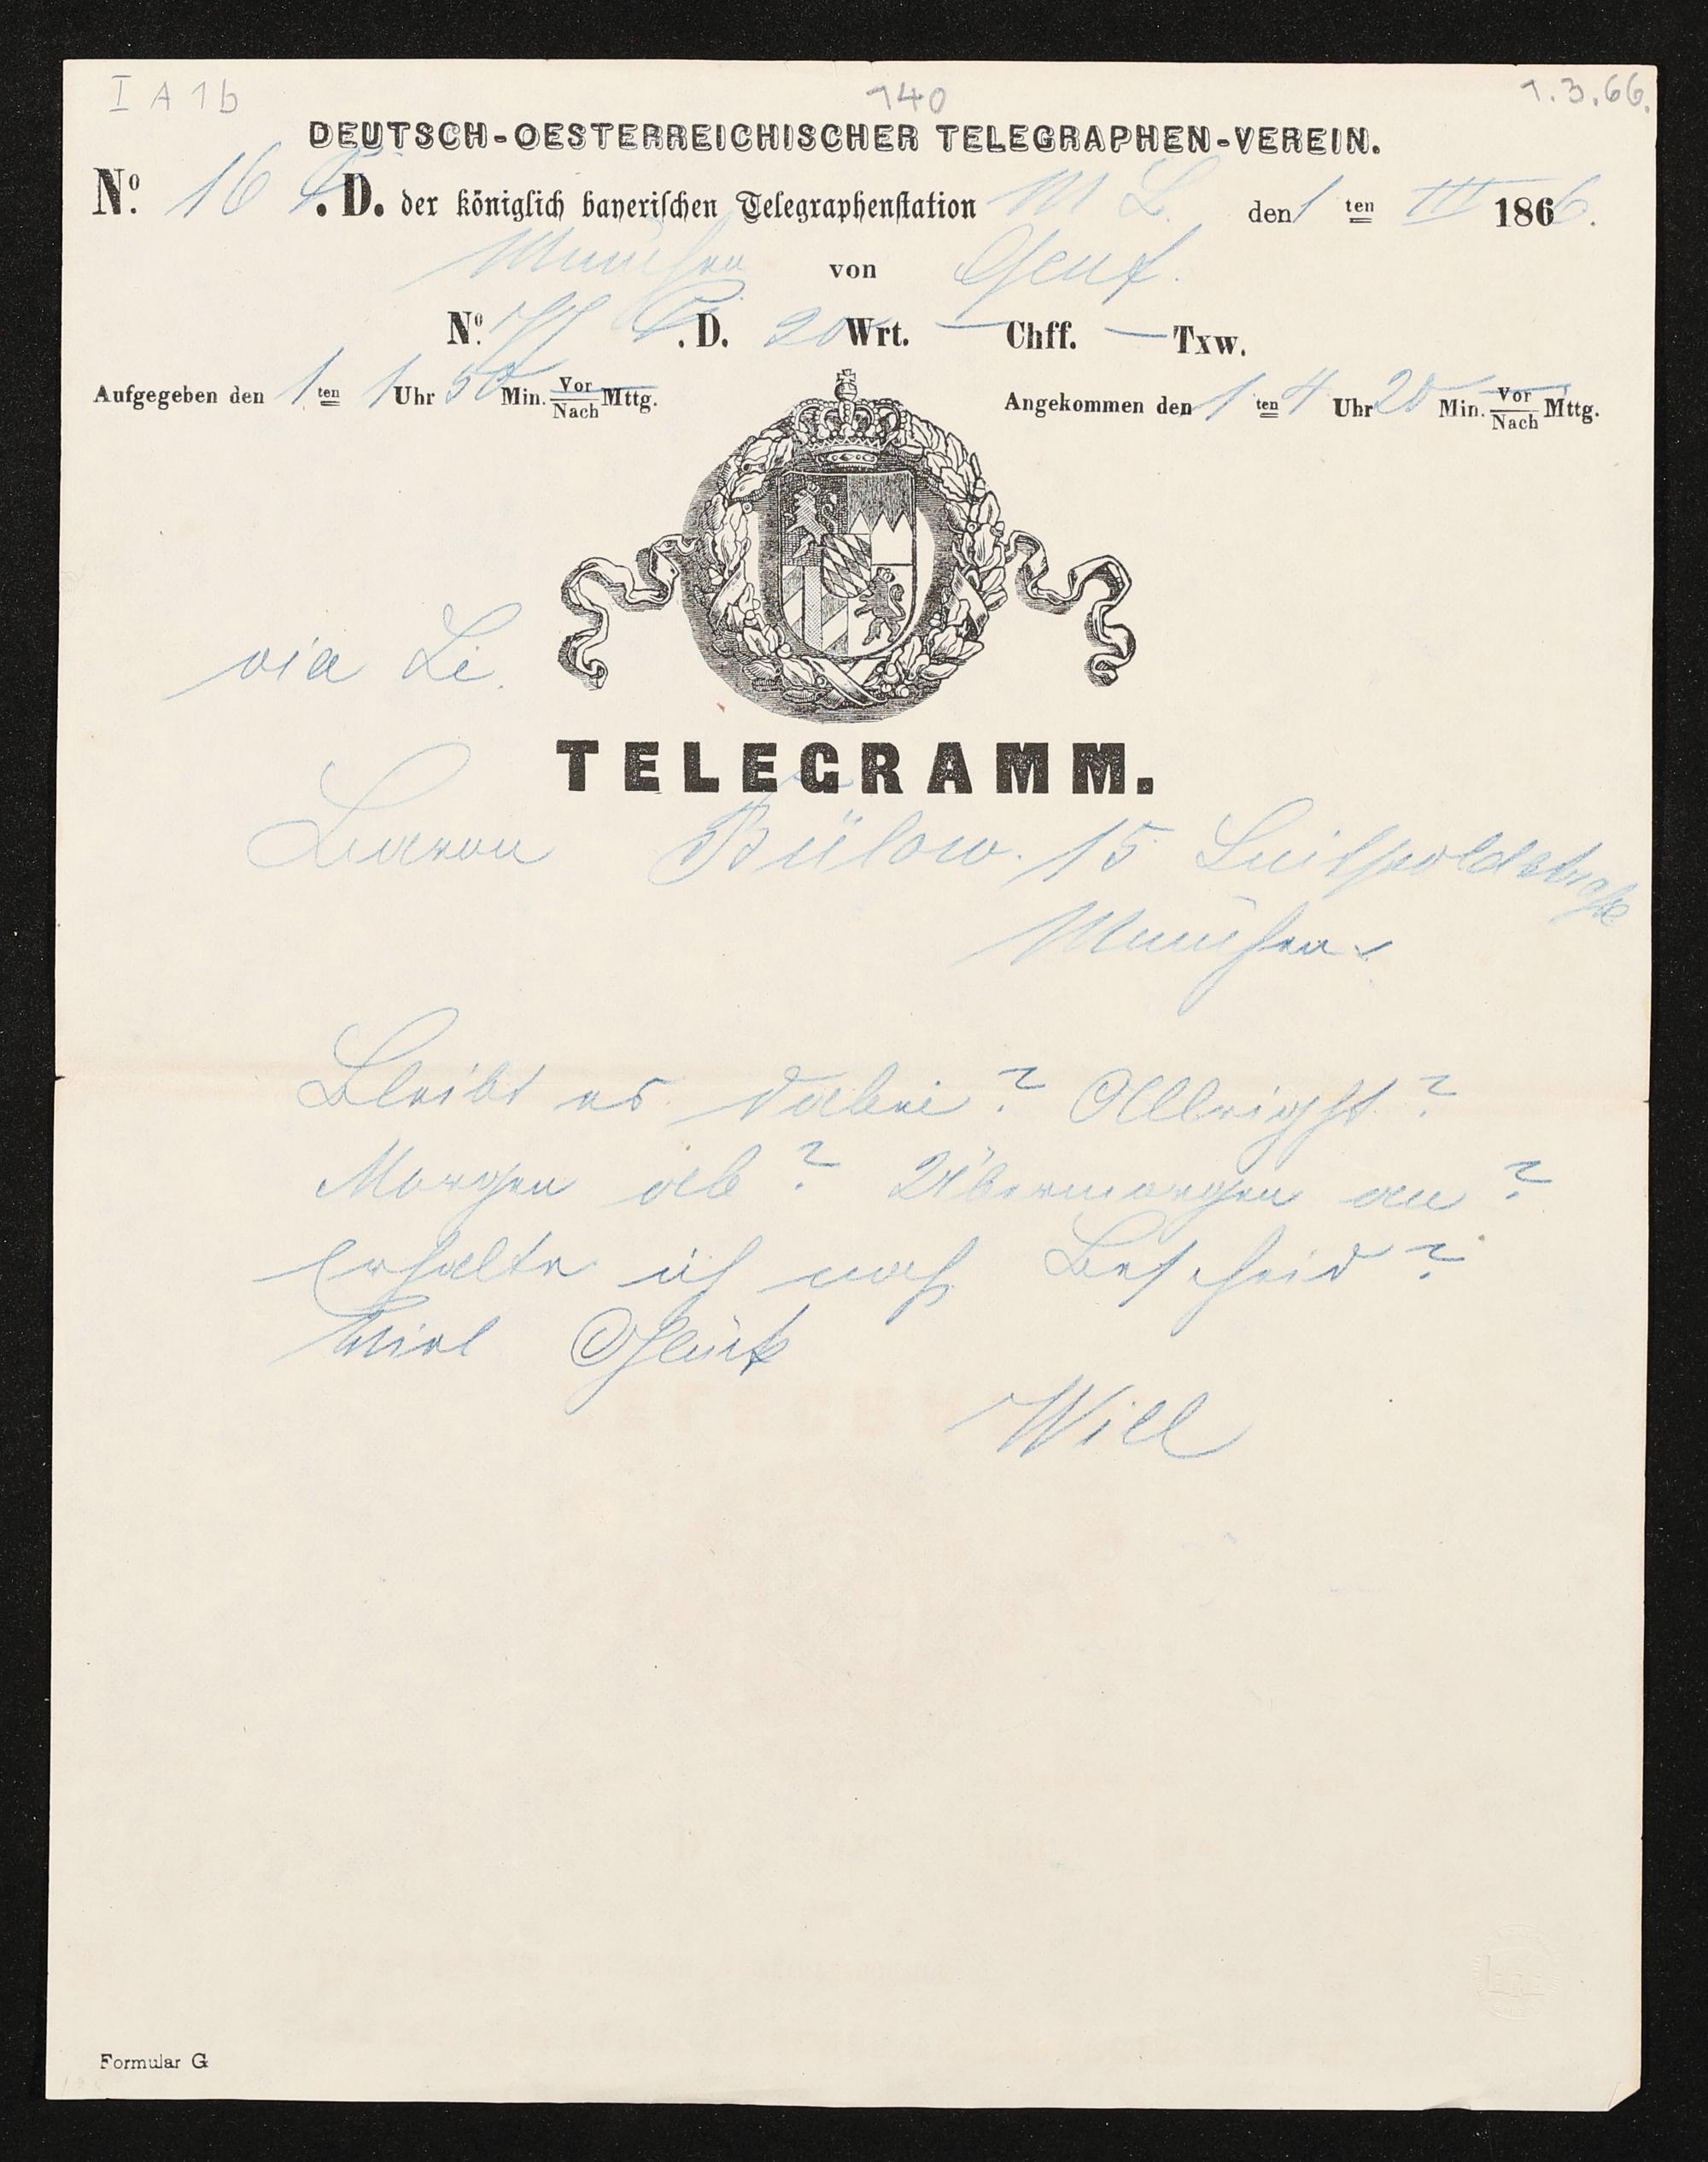 I A 1b 140 1.3.66.
DEUTSCH-OESTERREICHISCHER TELEGRAPHEN-VEREIN.
No. 16 .D. der königlich bayerischen Telegraphenstation M L. den 1 ten III 1866.
München von Genf.
No. .D. 20 Wrt. — Chff. — Txw.
Aufgegeben den 1 ten 1 Uhr 50 Min. Vor/Nach Mttg. Angekommen den 1 ten 4 Uhr 20 Min. Vor/Nach Mttg.
via Li.
TELEGRAMM.
Baron Bülow. 15 Luitpoldstraße
München
Bleibt es dabei? Allright?
Morgen ab? Übermorgen an?
Erhalte ich noch Bescheid?
Viel Glück
Will
Formular G